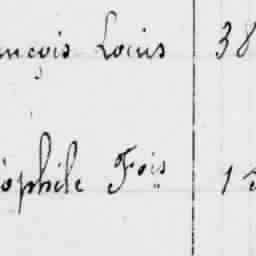 ançois Louis 38
ophile Fois 1